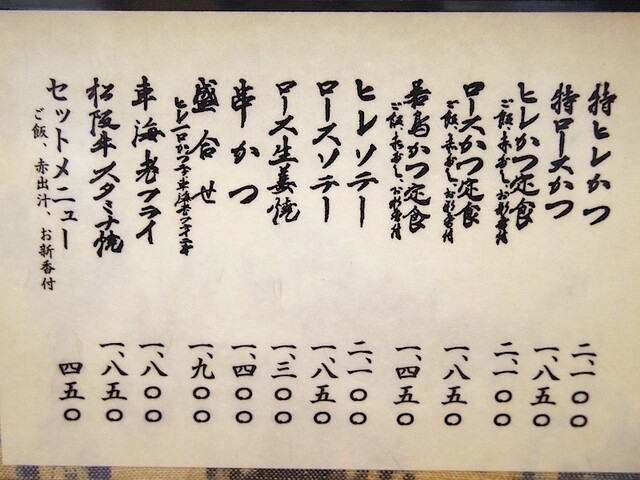 特ヒレかつ 二、一〇〇
特ロースかつ 一、八五〇
ヒレかつ定食 二、一〇〇
ご飯、赤だし、お新香付
ロースかつ定食 一、八五〇
ご飯、赤だし、お新香付
若鳥かつ定食 一、四五〇
ご飯、赤だし、お新香付
ヒレソテー 二、一〇〇
ロースソテー 一、八五〇
ロース生姜焼 一、三〇〇
串かつ 一、四〇〇
盛合せ 一、九〇〇
ヒレ一口かつ
車海老フライ 一、八〇〇
松阪牛スタミナ焼 一、八五〇
セットメニュー 四五〇
ご飯、赤出汁、お新香付